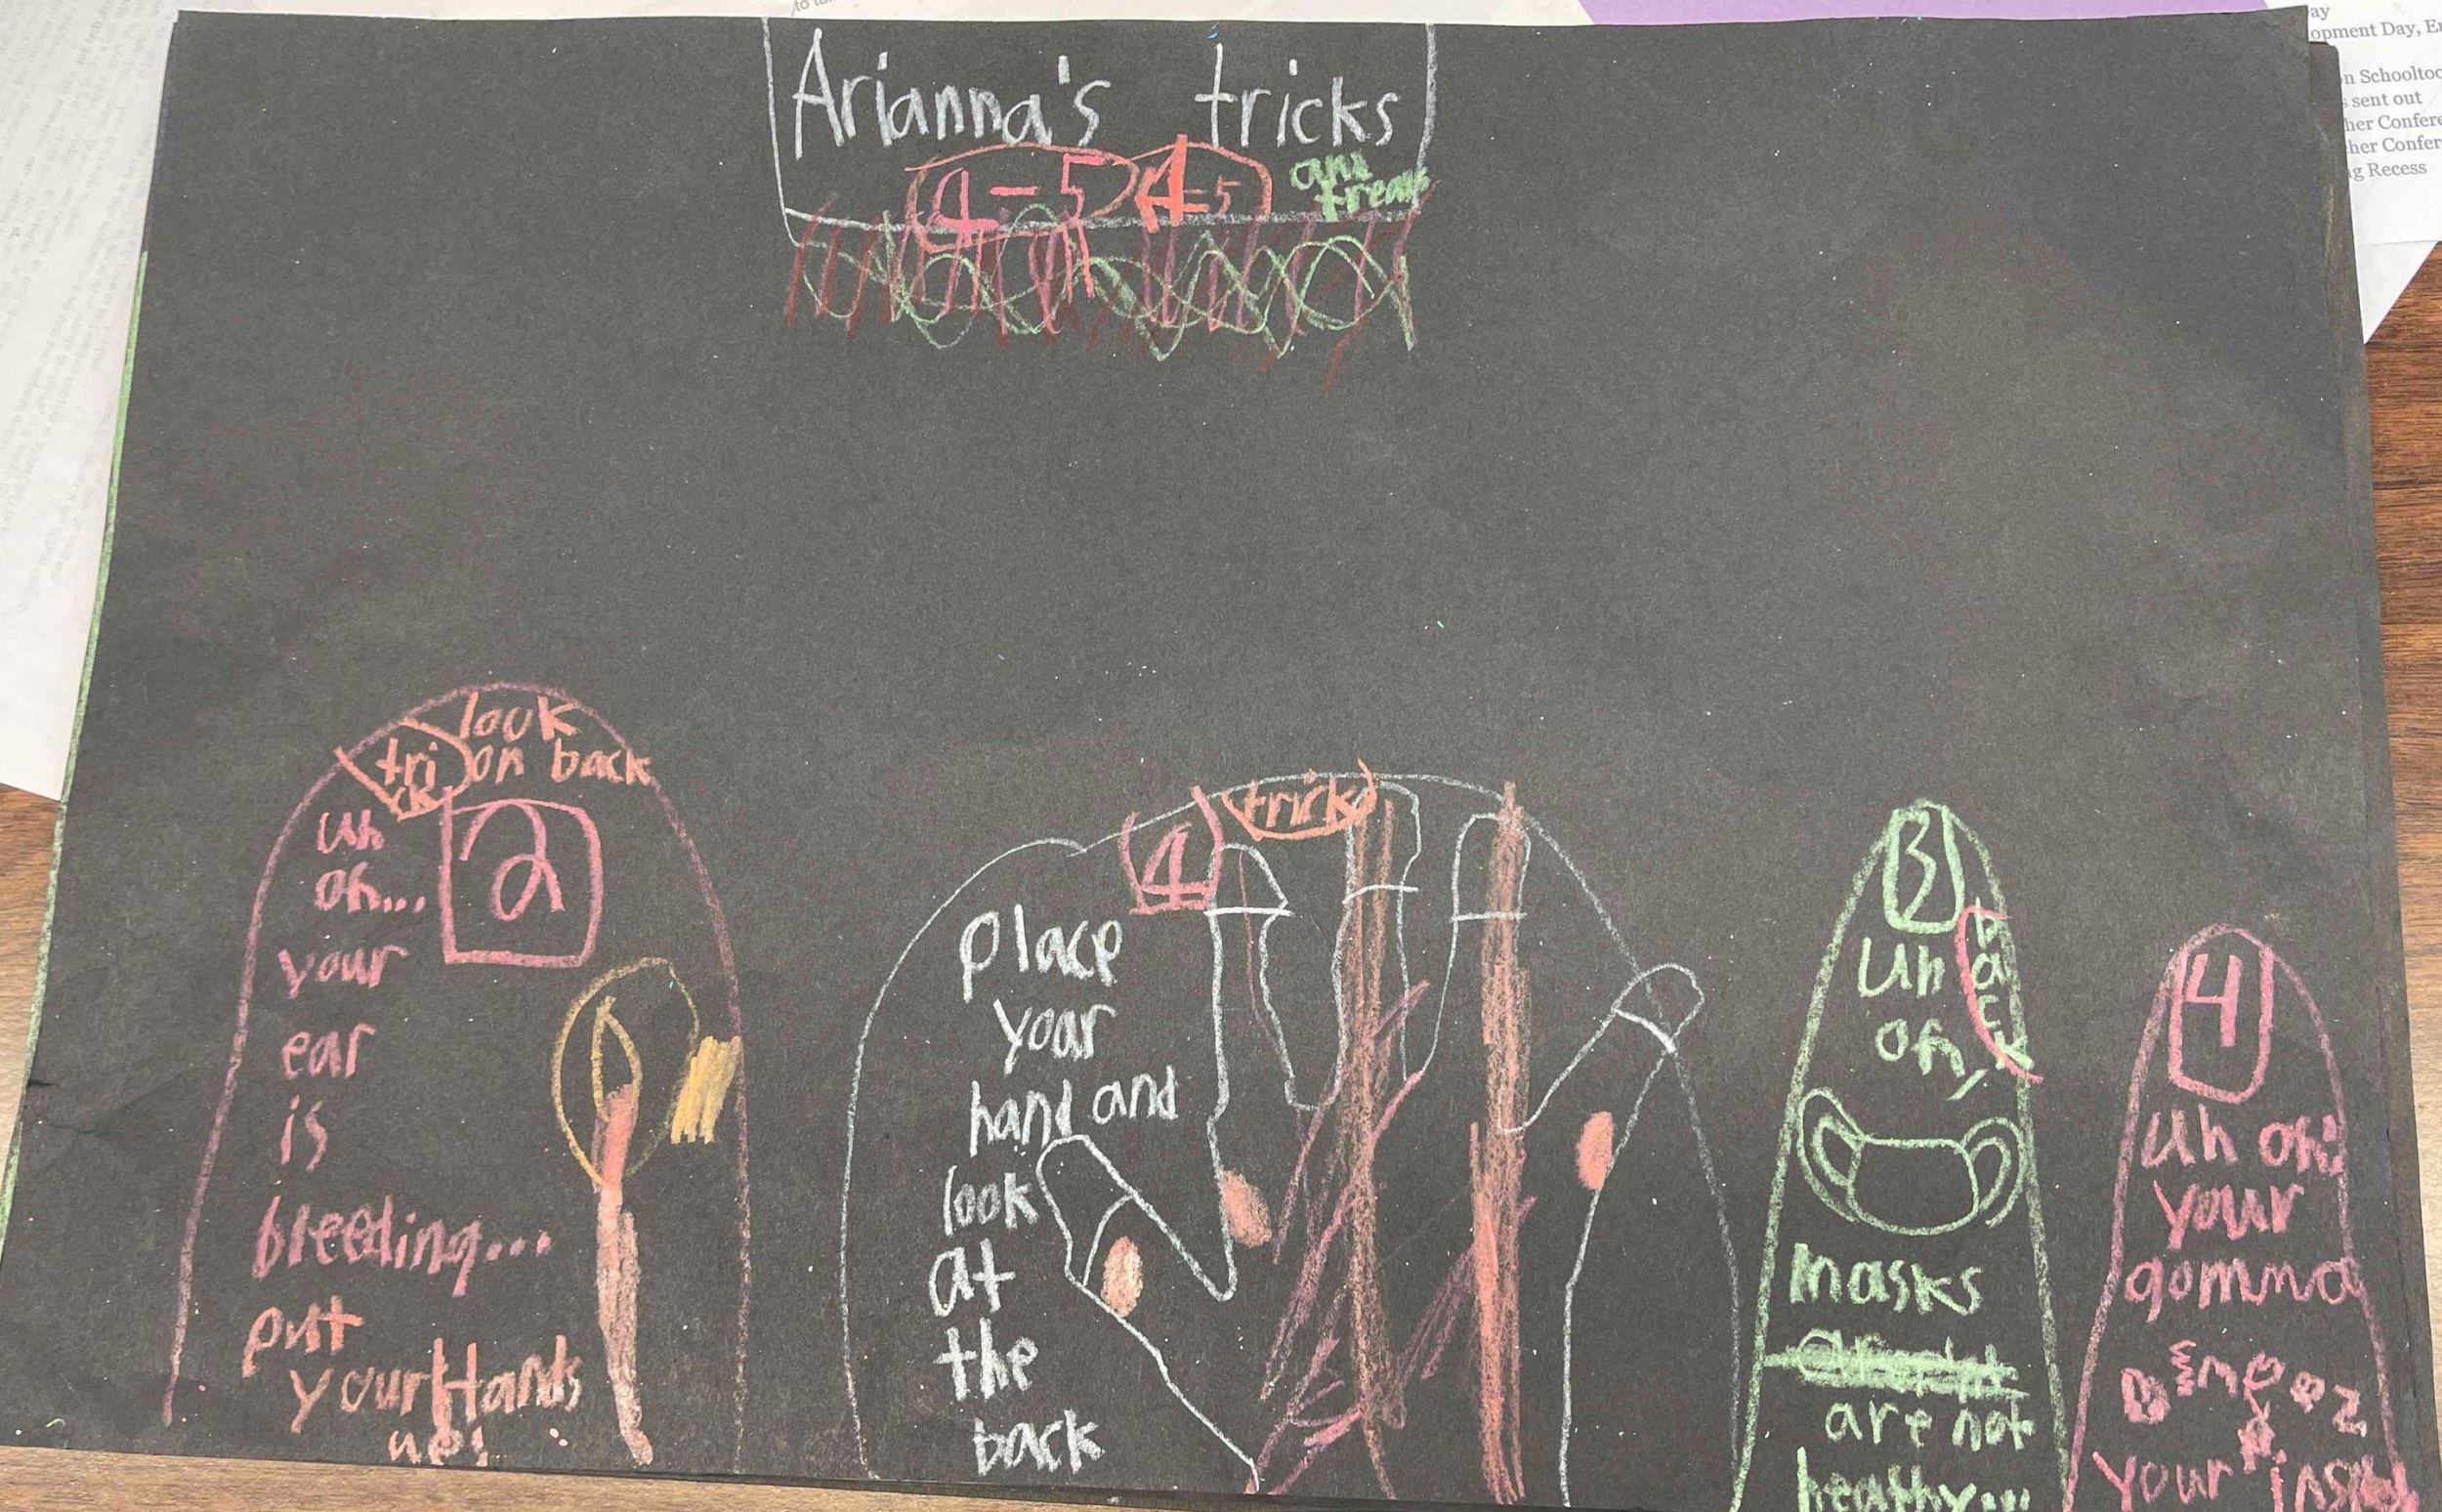 Arianna's tricks
4-5 4-5 and
treats
look
on back
tri
ck
2
uh
oh...
your
ear
is
bleeding...
put
your Hands
up!
trick
4
place
your
hand and
look
at
the
back
3
back
uh
oh,
masks
are not
healthy...
4
uh oh!
your
gomma
your
ay
opment Day,
n Schooltoo
s sent out
her Confere
cher Confer
g Recess